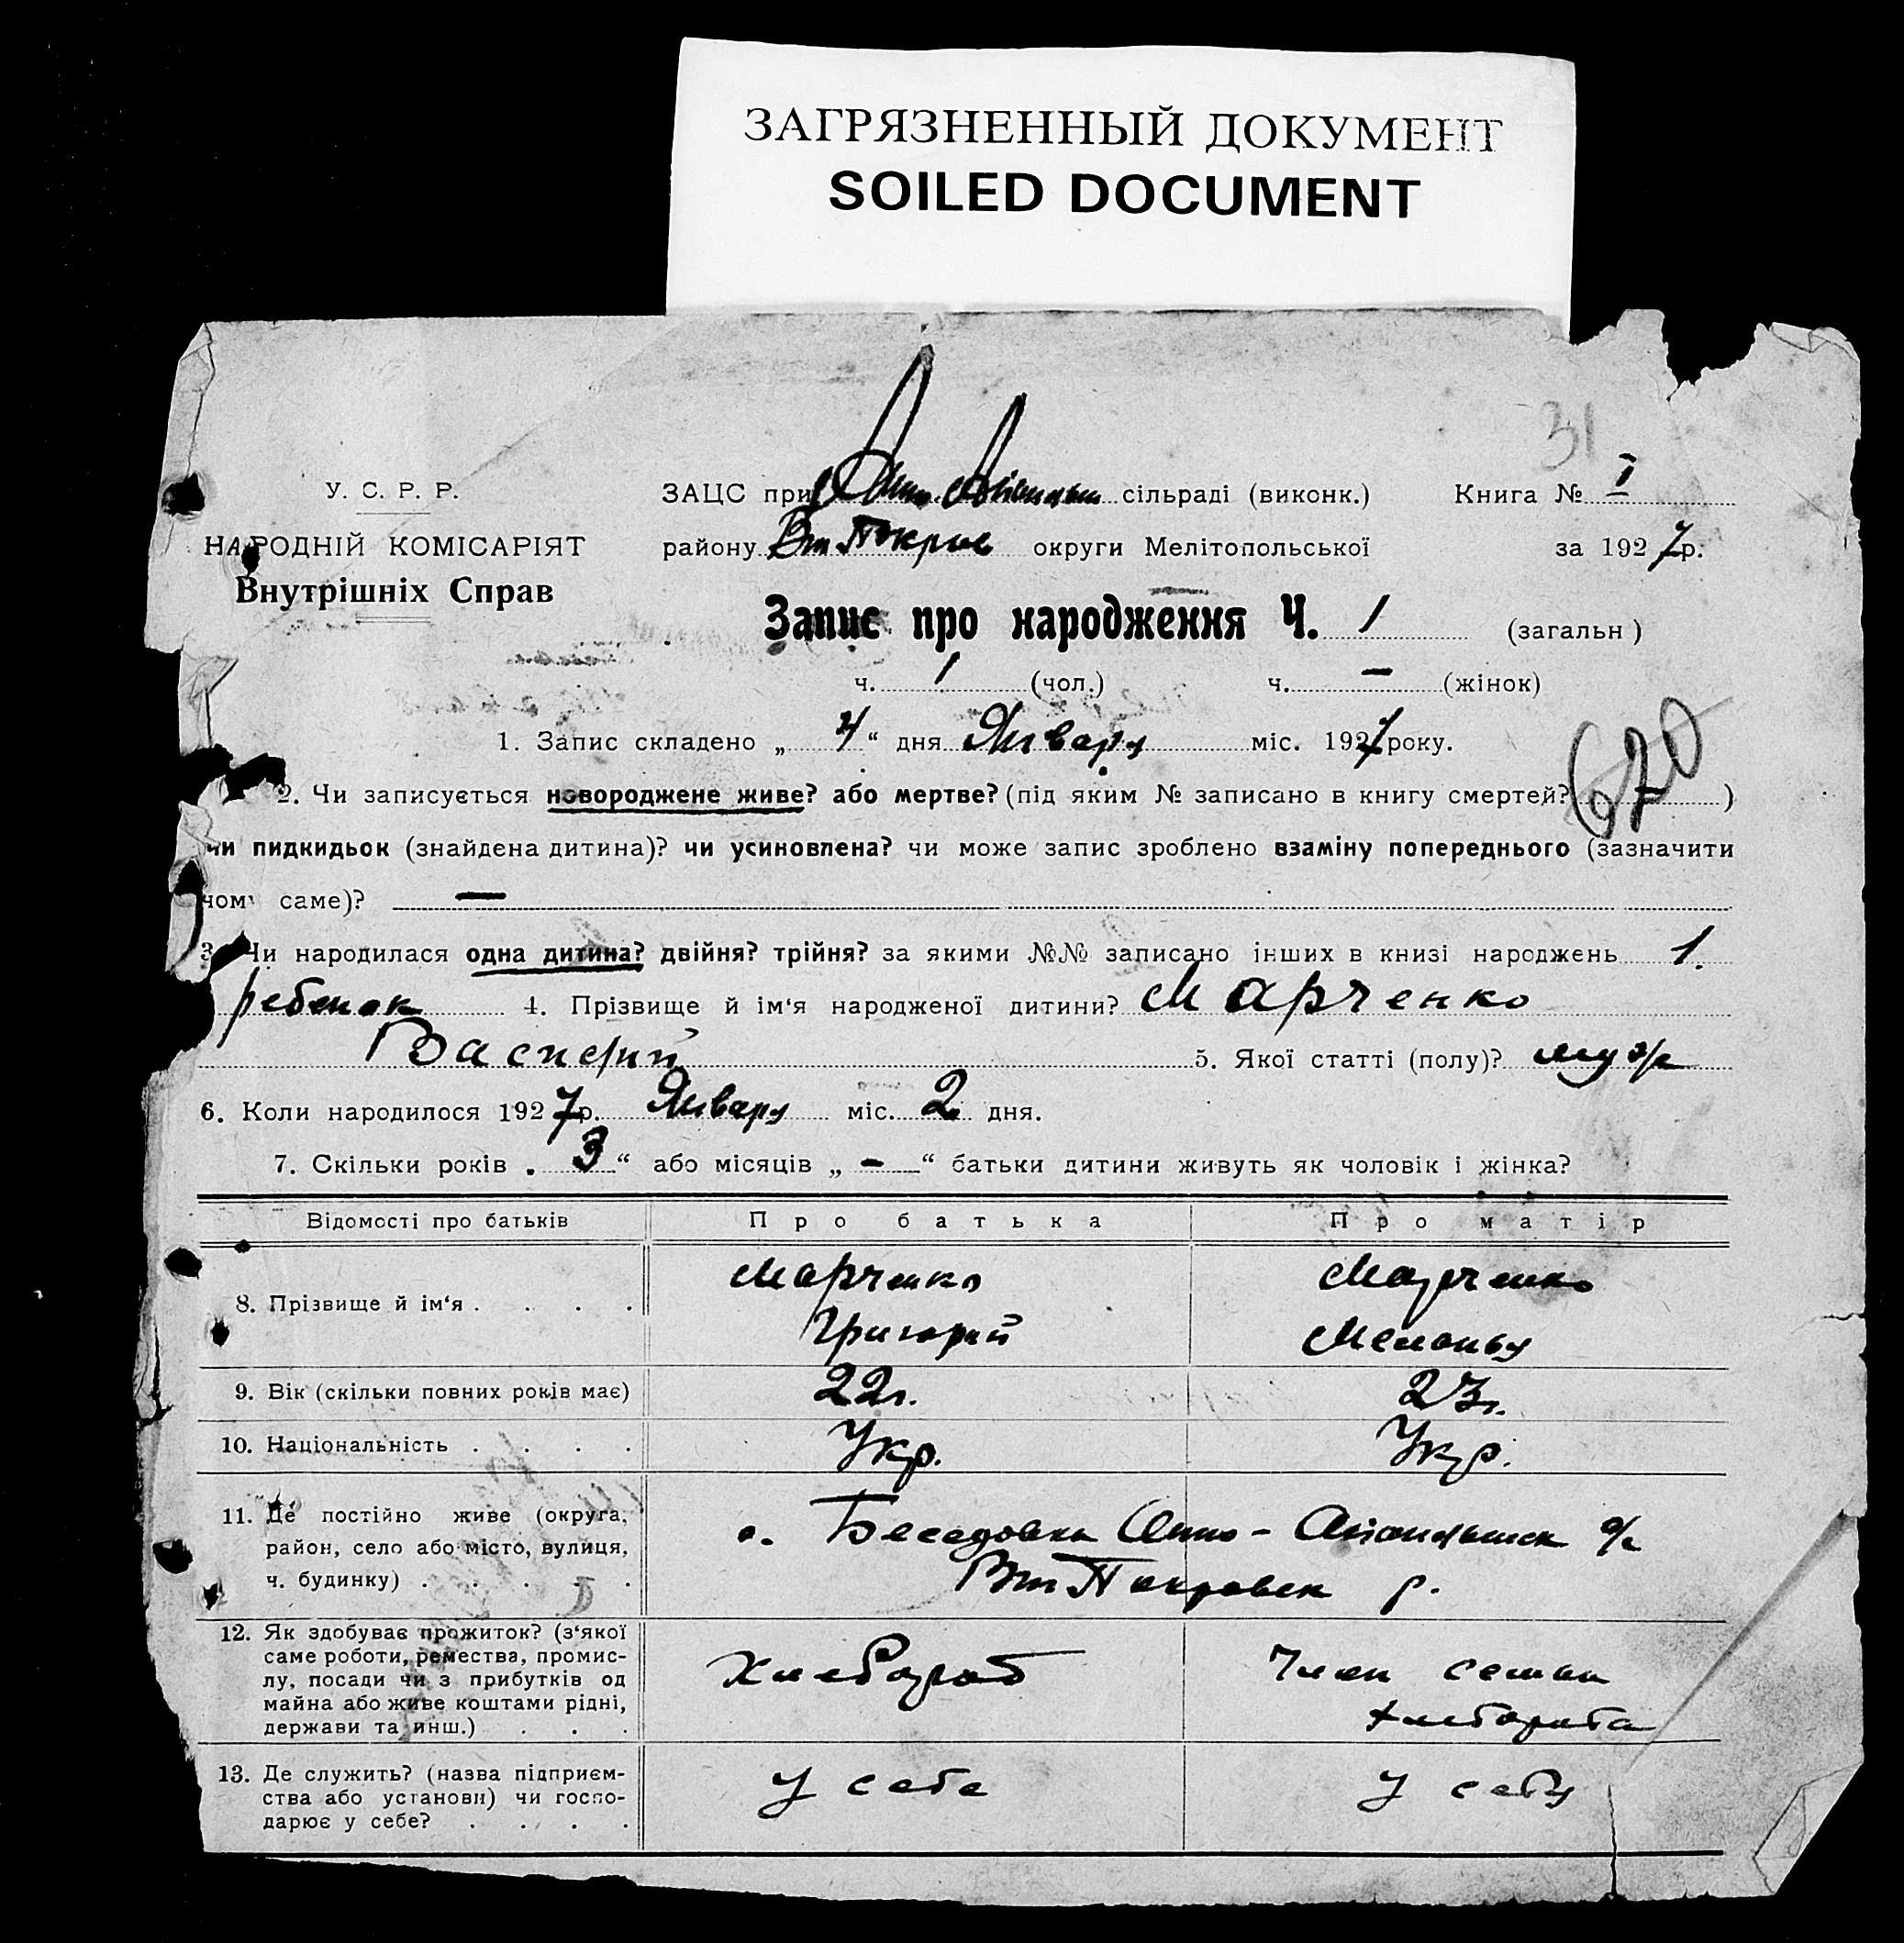 ЗАГРЯЗНЕННЫЙ ДОКУМЕНТ
SOILED DOCUMENT
31
У. С. Р. Р.
НАРОДНІЙ КОМІСАРІЯТ
Внутрішніх Справ
ЗАЦС при сільраді (виконк.) Книга № I
району Вт Покров округи Мелітопольської за 1927 р.
Запис про народження Ч. 1 (загальн)
ч. 1 (чол.) ч. — (жінок)
1. Запис складено „ 4 “ дня Января міс. 1927 року.
670
2. Чи записується новороджене живе? або мертве? (під яким № записано в книгу смертей? — )
чи пидкидьок (знайдена дитина)? чи усиновлена? чи може запис зроблено взаміну попереднього (зазначити
чому саме)? —
3. Чи народилася одна дитина? двійня? трійня? за якими №№ записано інших в книзі народжень 1.
ребенок 4. Прізвище й ім‘я народженої дитини? Марченко
Василий 5. Якої статті (полу)? муж
6. Коли народилося 1927 р. Января міс. 2 дня.
7. Скільки років „ 3 “ або місяців „ — “ батьки дитини живуть як чоловік і жінка?
Відомості про батьків Про батька Про матір
8. Прізвище й ім‘я . . . . Марченко Григорий Марченко Меланья
9. Вік (скільки повних років має) 22 г. 23 г.
10. Національність . . . . Укр. Укр.
11. Де постійно живе (округа,
район, село або місто, вулиця,
ч. будинку) . . . . .
с. Беседовка Анно- с/с
Вт Покровск р.
12. Як здобуває прожиток? (з‘якої
саме роботи, ремества, промис-
лу, посади чи з прибутків од
майна або живе коштами рідні,
держави та инш.) . . .
Хлебороб Член семьи
хлебороба
13. Де служить? (назва підприєм-
ства або установи) чи госпо-
дарює у себе? . . . .
У себе У себя